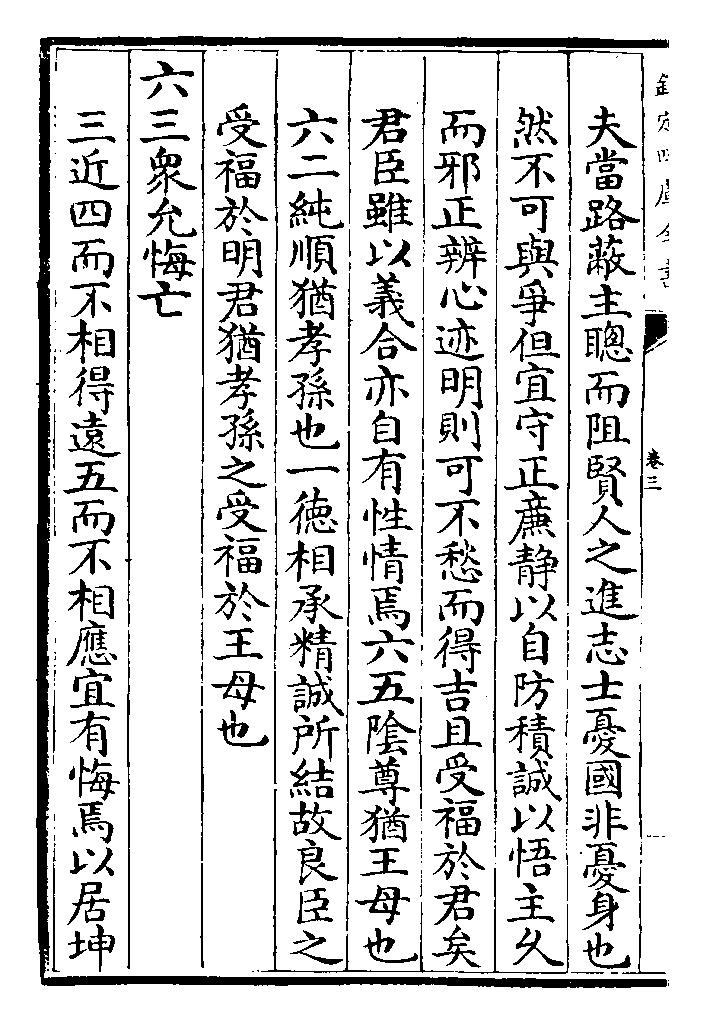 欽定四庫全書
卷三
夫當路蔽主聰而阻賢人之進志士憂國非憂身也
然不可與爭但宜守正亷静以自防積誠以悟主久
而邪正辨心迹明則可不愁而得吉且受福於君矣
君臣雖以義合亦自有性情焉六五陰尊猶王母也
六二純順猶孝孫也一徳相承精誠所結故良臣之
受福於明君猶孝孫之受福於王母也
六三衆允悔亡
三近四而不相得遠五而不相應宜有悔焉以居坤